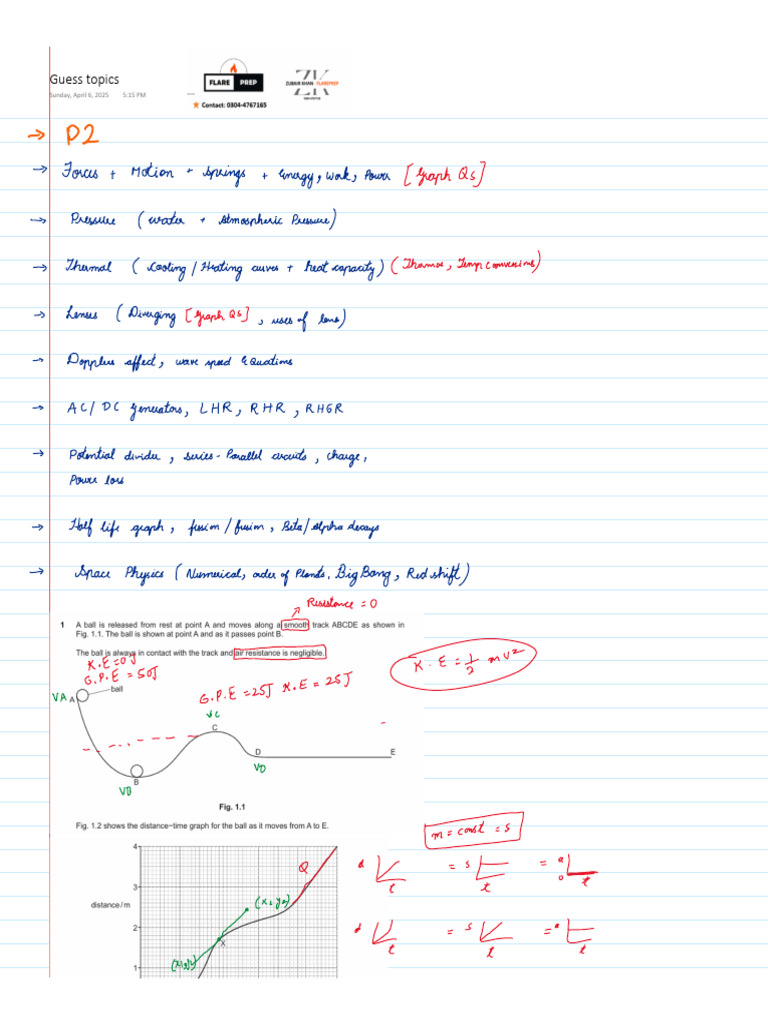 Guess topics
Sunday, April 6, 2025 5:15 PM
FLARE PREP
Contact: 0304-4767165
ZK
ZUBAIR KHAN FLAREPREP
→ P2
→ Forces + Motion + Springs + Energy, Work, Power [Graph Qs]
→ Pressure (water + Atmospheric Pressure)
→ Thermal (Cooling / Heating curves + heat capacity) (Thermos, Temp conversions)
→ Lenses (Diverging [Graph Qs], uses of lens)
→ Dopplers affect, wave speed Equations
→ AC/DC Generators, LHR, RHR, RHGR
→ Potential divider, series-Parallel circuits, charge,
Power loss
→ Half life graph, fission/fusion, Beta/alpha decays
→ Space Physics (Numerical, order of Planets, Big Bang, Red shift)
Resistance = 0
1 A ball is released from rest at point A and moves along a smooth track ABCDE as shown in
Fig. 1.1. The ball is shown at point A and as it passes point B.
The ball is always in contact with the track and air resistance is negligible.
K.E = 1/2 mv²
K.E = 0J
G.P.E = 50J
ball
G.P.E = 25J K.E = 25J
VA A
VC
C
D E
VD
B
VB
Fig. 1.1
Fig. 1.2 shows the distance–time graph for the ball as it moves from A to E.
m = const = s
4
Q
d t = s t = a 0 t
3
distance / m
(x2, y2)
2
d t = s t = a t
X
(x1, y1)
1